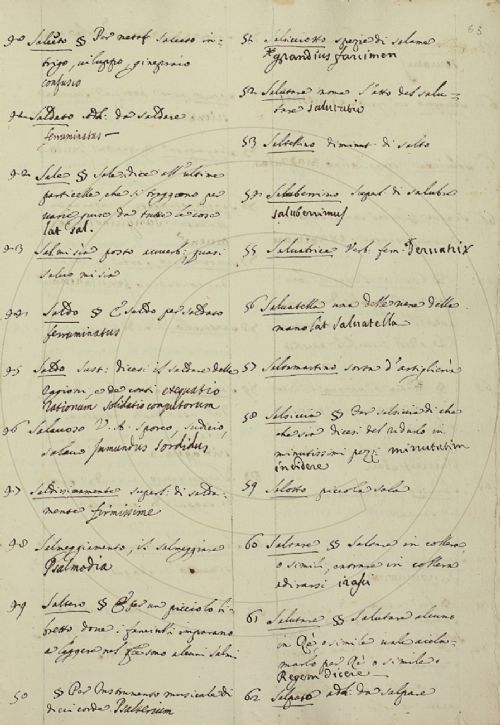 63
40 Salceto § Per metaf. salceto in-
trigo, viluppo, ginepraio
confusio
Saldato Add. da saldare
ferruminatus
42 Sale § Sale dice all'ultime
particelle che si traggono per
da tutte le cose
Lat sal.
43 Salmisia posto avverb. quasi
salvo mi sia
44 Saldo § E Saldo per saldato
ferruminatus
45 Saldo Sust. dicesi il saldare delle
ragioni, e de conti exequatio
rationum solidatio computorum
46 Salavoso V. A. sporco, sudicio,
salavo Immundus sordidus
47 Saldissimamente superl. di salda-
mente firmissime
48 Salmeggiamento, il salmeggiare
Psalmodia
49 Saltero § E per un picciolo li-
bretto dove i fanciulli imparano
a leggere nel sono alcuni salmi
50 § Per Instrumento musicale di
dieci corde Psalterium
51 Salsicciotto spezie di salame
grandius farcimen
52 Salutare nome l'atto del salu-
tare salutatio
53 Saltellino diminut. di salto
54 Saluberrimo superl. di salubre
saluberrimus
55 Salvatrice Verb. fem. servatrix
56 Salvatella una delle vene della
mano Lat salvatella
57 Salsamartino sorta d'artiglieria
58 Salsiccia § Per salsiccia di che
che sia dicesi del ridurlo in
minutissimi pezzi minutatim
incidere
59 Salotto piccola sala
60 Salvare § Salvare in collera
o simili, in collera
adirarsi irasci
61 Salutare § Salutare alcuno
in Rè, o simile vale acclam-
marlo per Rè o simile
Regem dicere
62 Salpato add. da salpare